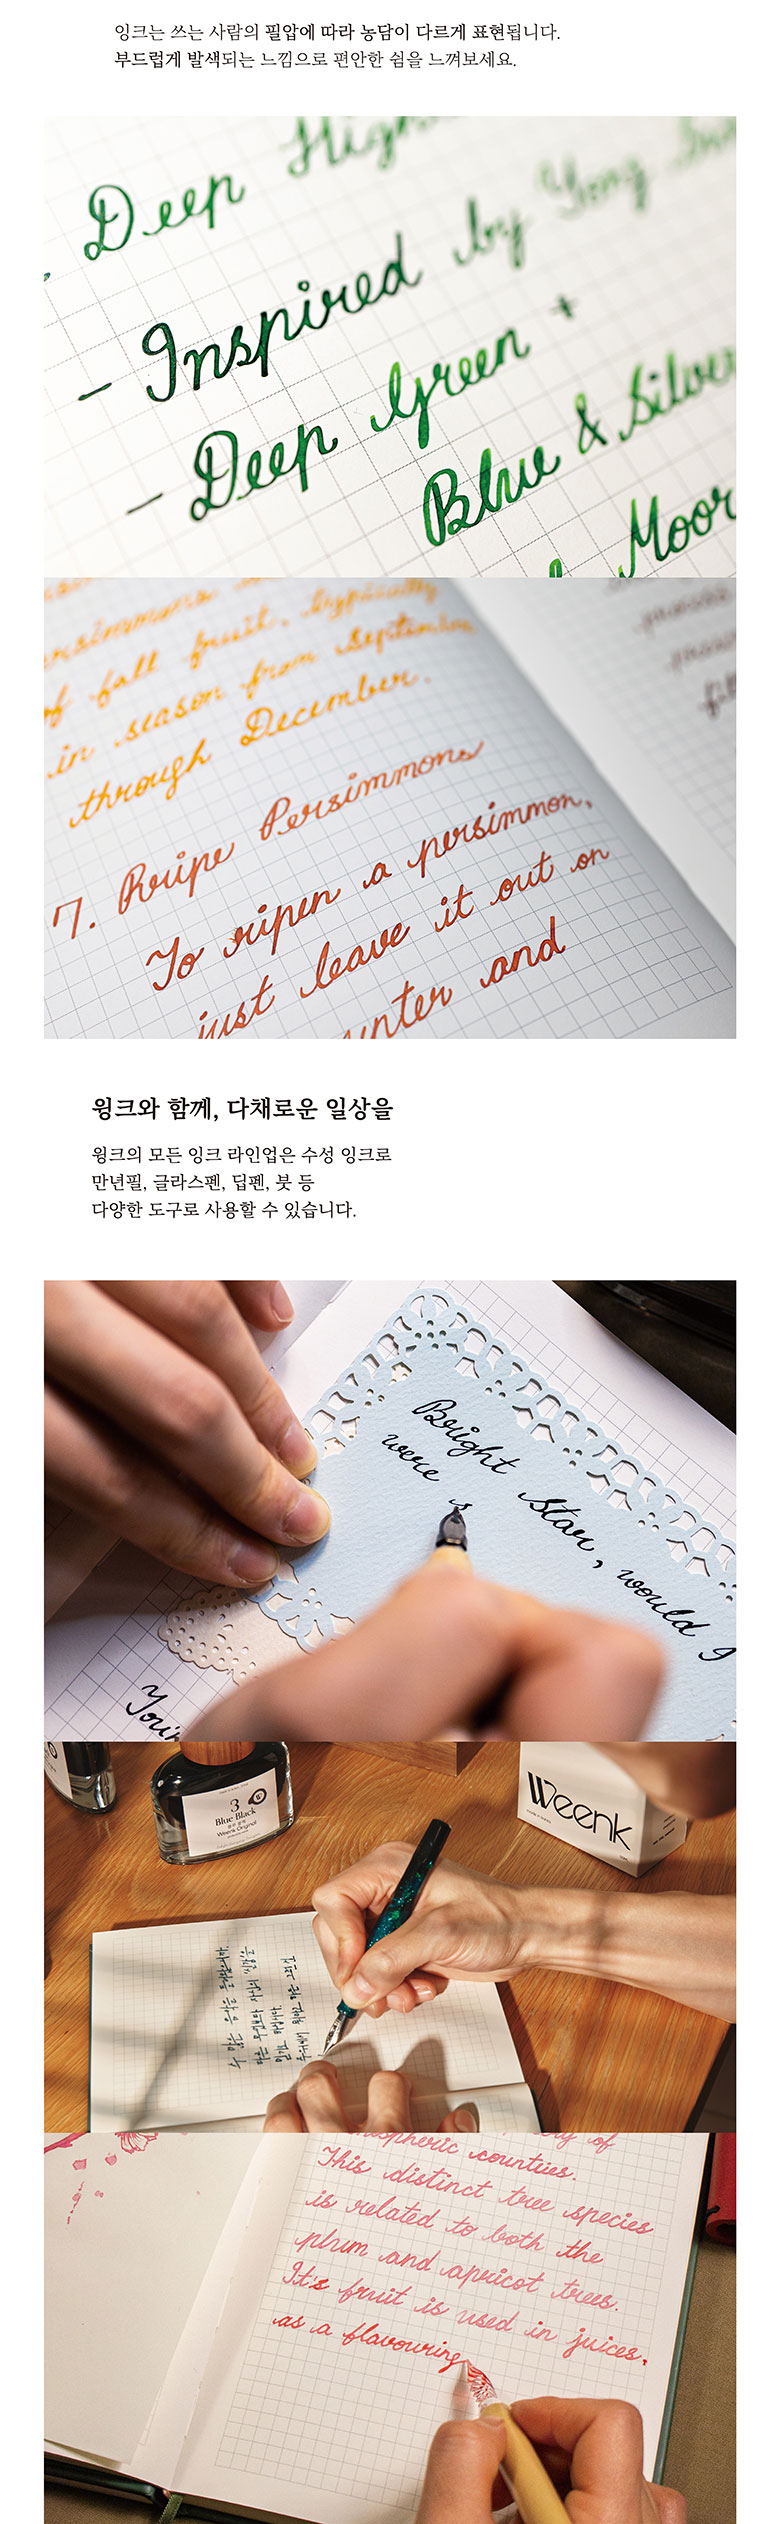 잉크는 쓰는 사람의 필압에 따라 농담이 다르게 표현됩니다.
부드럽게 발색되는 느낌으로 편안한 쉼을 느껴보세요.
Deep High
- Inspired by Yong
- Deep Green +
Blue & Silver
Moor
of fall fruit, typically
in season from September
through December.
7. Ripe Persimmons
To ripen a persimmon,
just leave it out on
and
윙크와 함께, 다채로운 일상을
윙크의 모든 잉크 라인업은 수성 잉크로
만년필, 글라스펜, 딥펜, 붓 등
다양한 도구로 사용할 수 있습니다.
Bright star, would I
were s
3
Blue Black
Weenk Original
Weenk
of
counties.
This distinct tree species
is related to both the
plum and apricot trees.
It's fruit is used in juices,
as a flavouring